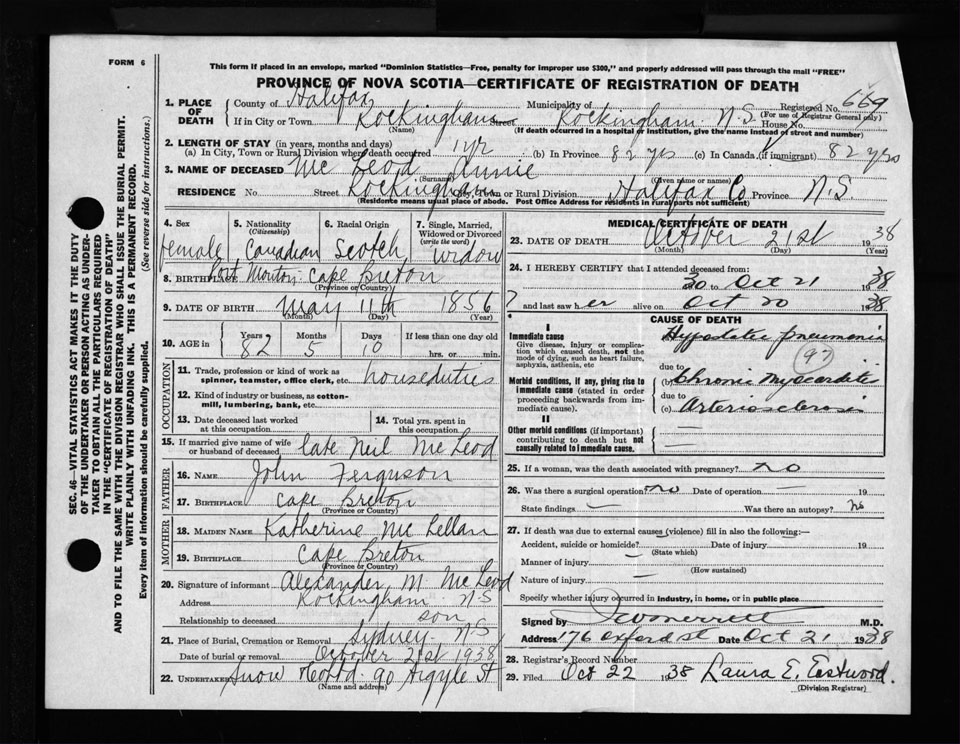 FORM 6
This form if placed in an envelope, marked "Dominion Statistics—Free, penalty for improper use $300," and properly addressed will pass through the mail "FREE"
PROVINCE OF NOVA SCOTIA—CERTIFICATE OF REGISTRATION OF DEATH
1. PLACE OF DEATH County of Halifax Municipality of Registered No. 669
(For use of Registrar General only)
If in City or Town Rockingham Street Rockingham N.S. House No.
(Name) (If death occurred in a hospital or institution, give the name instead of street and number)
2. LENGTH OF STAY (in years, months and days)
(a) In City, Town or Rural Division where death occurred 1 yr (b) In Province 82 yrs (c) In Canada (if immigrant) 82 yrs
3. NAME OF DECEASED Mc Leod Annie
(Surname) (Given name or names)
RESIDENCE No. Street Rockingham City, Town or Rural Division Halifax Co. Province N.S.
(Residents means usual place of abode. Post Office Address for residents in rural parts not sufficient)
4. Sex 5. Nationality 6. Racial Origin 7. Single, Married, Widowed or Divorced
(Citizenship) (write the word)
female Canadian Scotch widow
8. BIRTHPLACE Port Morien Cape Breton
(Province or Country)
9. DATE OF BIRTH May 11th 1856
(Month) (Day) (Year)
10. AGE in Years Months Days If less than one day old
82 5 10 hrs. or min.
OCCUPATION
11. Trade, profession or kind of work as spinner, teamster, office clerk, etc. houseduties
12. Kind of industry or business, as cotton-mill, lumbering, bank, etc.
13. Date deceased last worked at this occupation
14. Total yrs. spent in this occupation
15. If married give name of wife or husband of deceased late Neil Mc Leod
FATHER
16. NAME John Ferguson
17. BIRTHPLACE Cape Breton
(Province or Country)
MOTHER
18. MAIDEN NAME Katherine Mc Lellan
19. BIRTHPLACE Cape Breton
(Province or Country)
20. Signature of informant Alexander M. Mc Leod
Address Rockingham N.S
Relationship to deceased son
21. Place of Burial, Cremation or Removal Sydney N.S
Date of burial or removal October 21st 1938
22. UNDERTAKER Snow 90 Argyle St
(Name and address)
MEDICAL CERTIFICATE OF DEATH
23. DATE OF DEATH October 21st 1938
(Month) (Day) (Year)
24. I HEREBY CERTIFY that I attended deceased from:
? 30 to Oct 21 1938
and last saw her alive on Oct 20 1938
CAUSE OF DEATH
I
Immediate cause Hypostatic pneumonia
Give disease, injury or complication which caused death, not the mode of dying, such as heart failure, asphyxia, asthenia, etc
(97)
Morbid conditions, if any, giving rise to immediate cause (stated in order proceeding backwards from immediate cause).
due to
(b) Chronic Myocarditis
due to
(c) Arteriosclerosis
II
Other morbid conditions (if important) contributing to death but not causally related to immediate cause.
25. If a woman, was the death associated with pregnancy? no
26. Was there a surgical operation? no Date of operation — 19
State findings — Was there an autopsy? No
27. If death was due to external causes (violence) fill in also the following:—
Accident, suicide or homicide? Date of injury 19
(State which)
Manner of injury —
(How sustained)
Nature of injury —
Specify whether injury occurred in industry, in home, or in public place
Signed by M.D.
Address 176 Oxford st Date Oct 21 1938
28. Registrar's Record Number
29. Filed Oct 22 1938 Laura E. Eastwood.
(Division Registrar)
SEC. 46—VITAL STATISTICS ACT MAKES IT THE DUTY
OF THE UNDERTAKER OR PERSON ACTING AS UNDER-
TAKER TO OBTAIN ALL THE PARTICULARS REQUIRED
IN THE "CERTIFICATE OF REGISTRATION OF DEATH"
AND TO FILE THE SAME WITH THE DIVISION REGISTRAR WHO SHALL ISSUE THE BURIAL PERMIT.
WRITE PLAINLY WITH UNFADING INK. THIS IS A PERMANENT RECORD.
Every item of information should be carefully supplied. (See reverse side for instructions.)